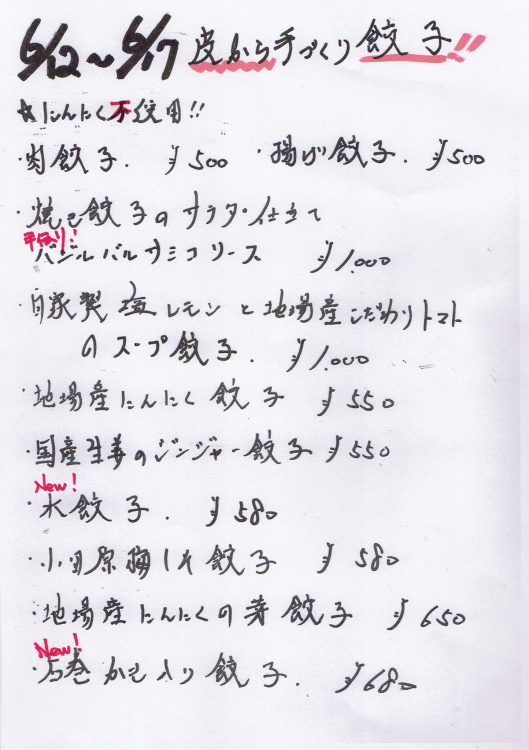 6/12～6/17 皮から手づくり餃子!!
☆にんにく不使用!!
・肉餃子. ¥500 ・揚げ餃子. ¥500
・焼き餃子のサラダ仕立て
平日のり!!
バジルバルサミコソース ¥1.000
・自家製塩レモンと地場産こだわりトマト
のスープ餃子. ¥1.000
・地場産にんにく餃子 ¥550
・国産生姜のジンジャー餃子 ¥550
New!
・水餃子. ¥580
・小田原梅しそ餃子 ¥580
・地場産にんにくの芽餃子 ¥650
New!
・石巻かき入り餃子. ¥680